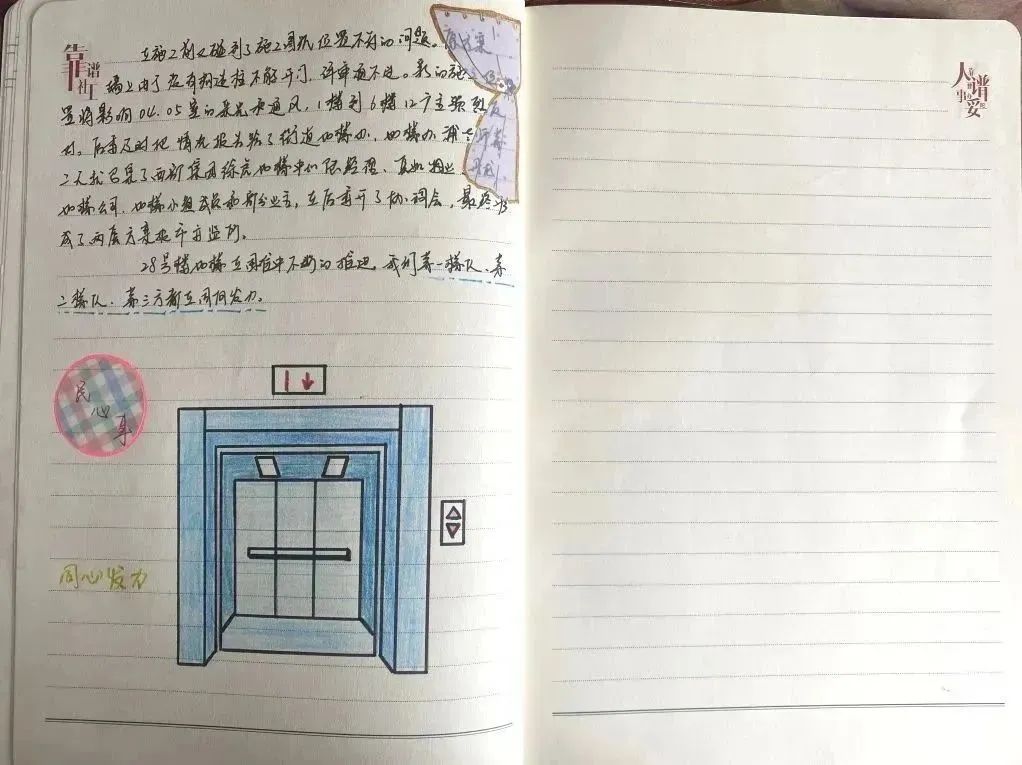 靠谱社工
在施工前又碰到了施工图纸位置不符的问题。
墙上由于没有构造柱不能开门,评审通不过。新的施
置将影响04.05室的采光和通风,1楼到6楼12户主强烈
对。居委及时把情况报告给了街道加梯办,加梯办
二天就召集了西部集团徐房加梯中心 经理、 物业、
加梯公司、加梯小组成员和部分业主,在居委开了协调会,最终形
成了两套方案
28号楼加梯在困难中不断的推进,我们第一梯队、第
二梯队、第三方都在同向发力。
民心事
同心发力
人谱事妥